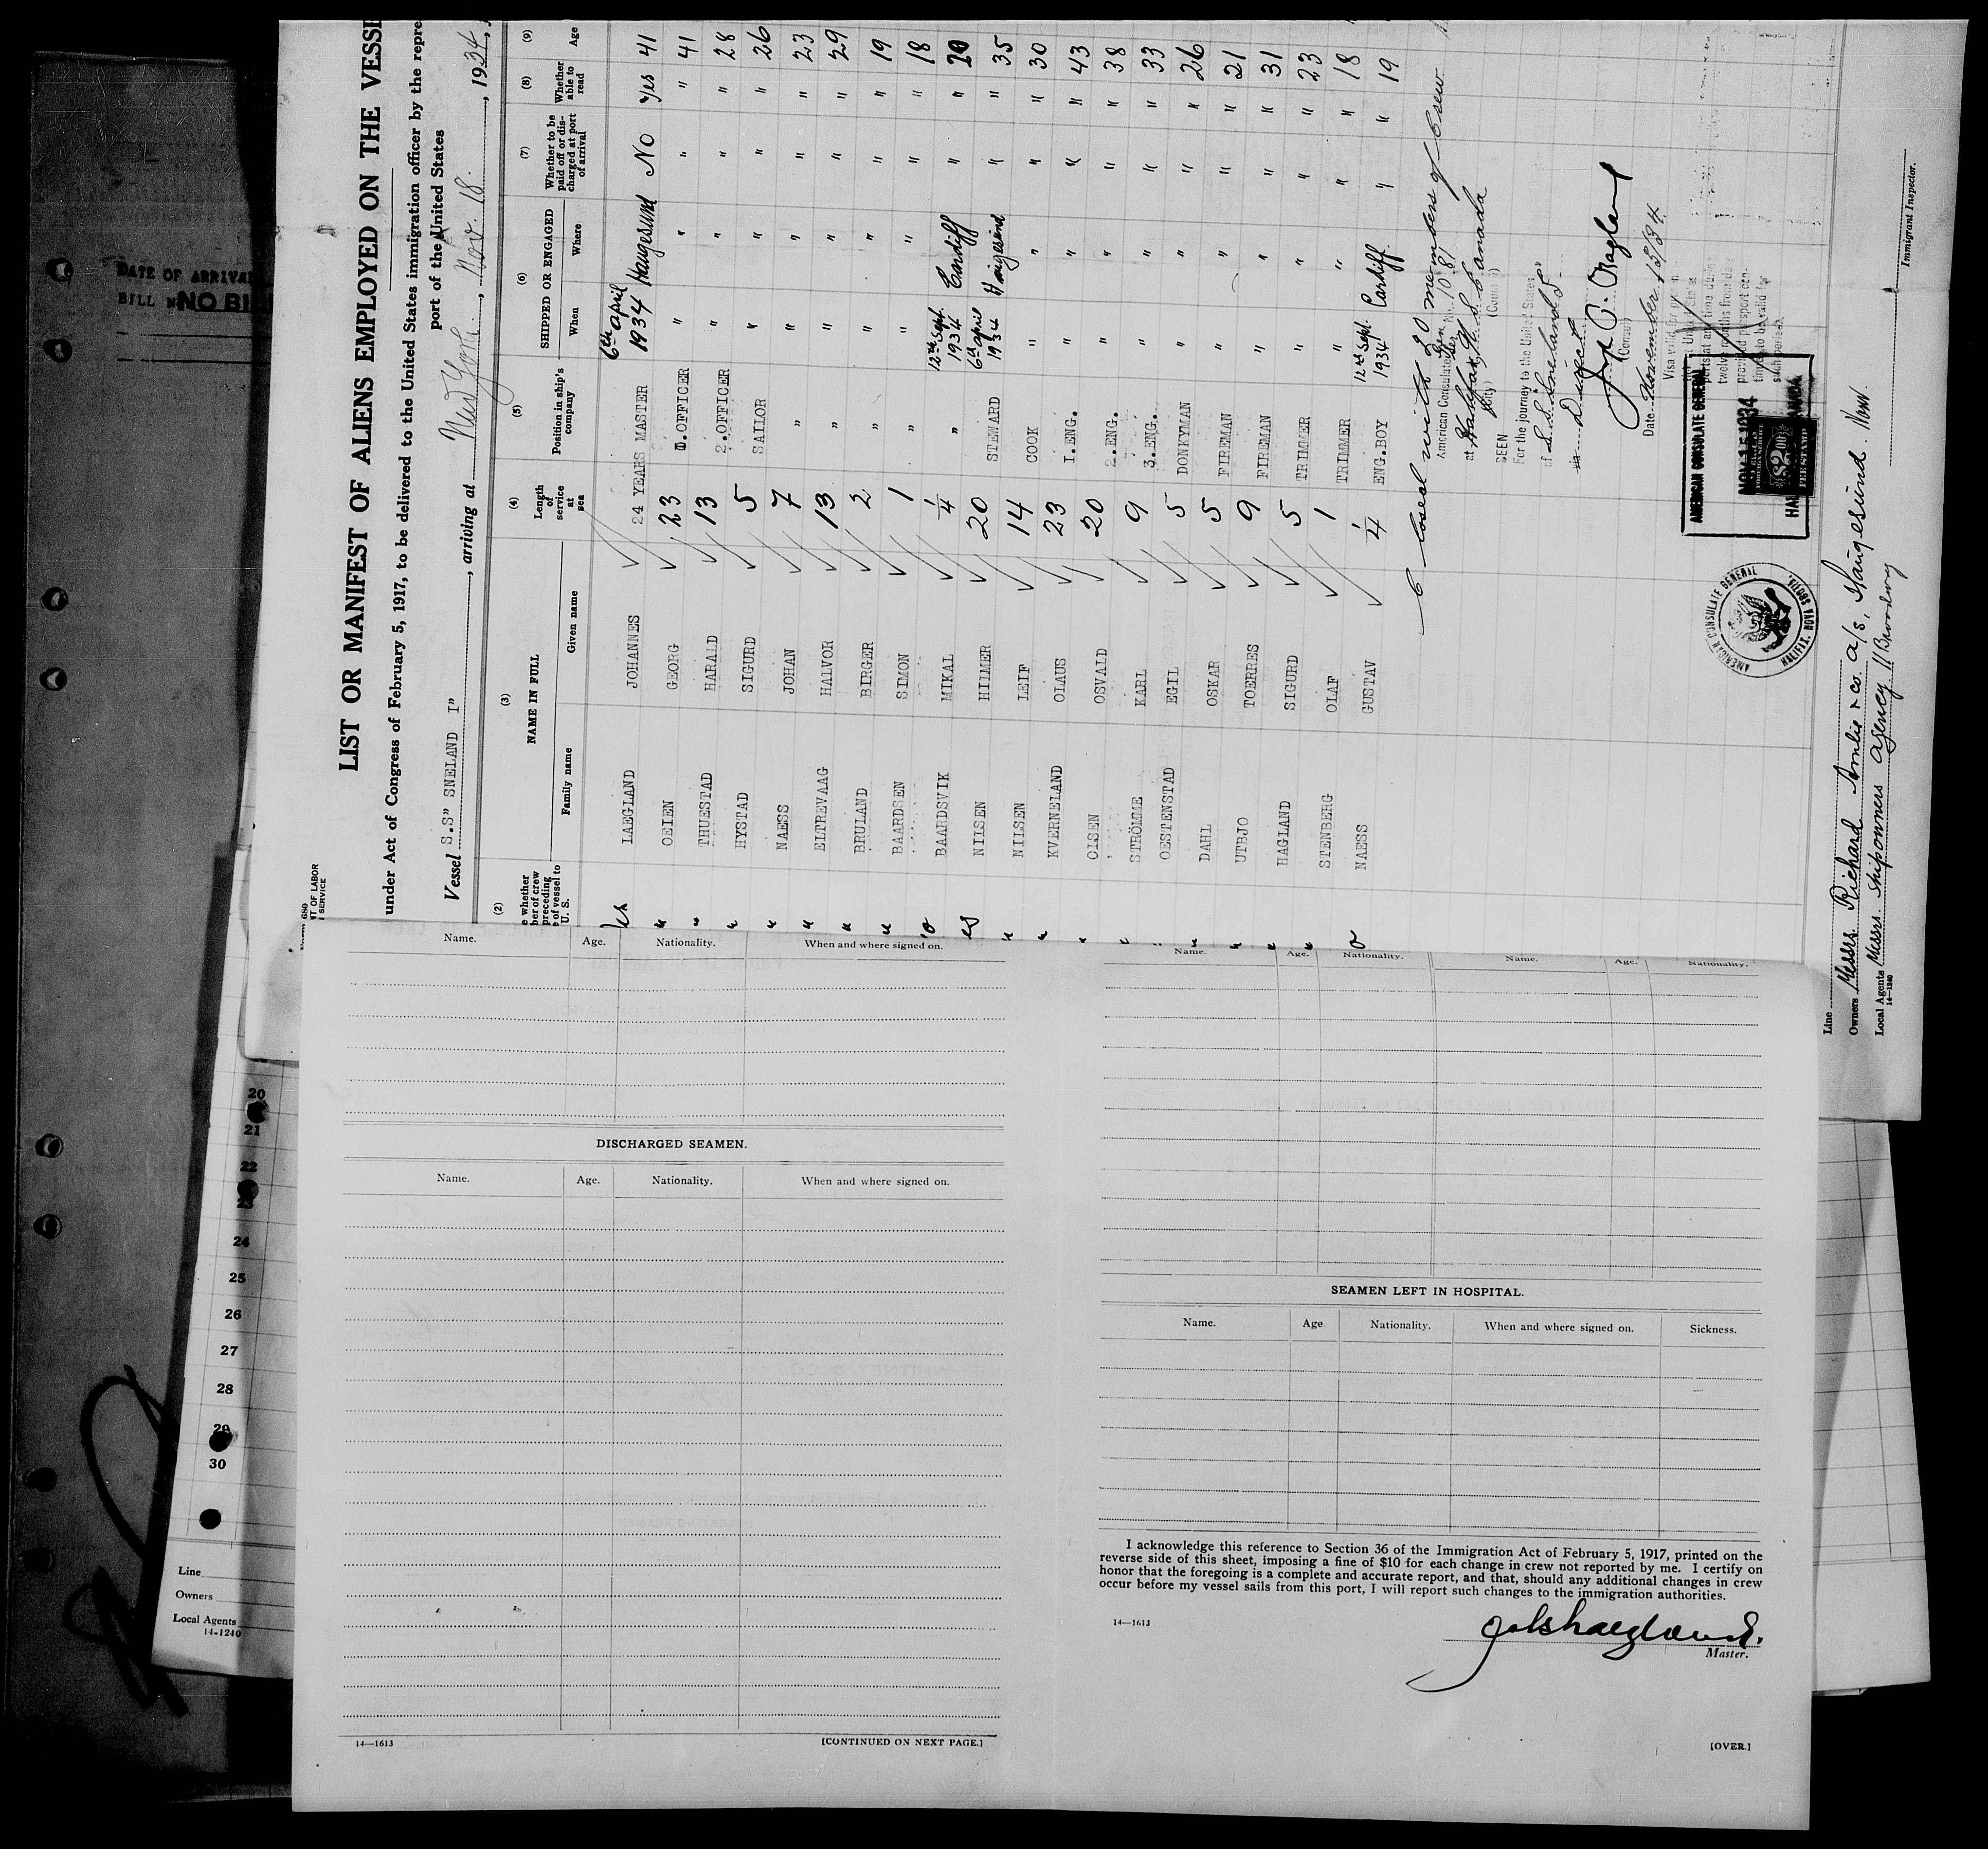 DATE OF ARRIVAL
BILL
NO BI
LIST OR MANIFEST OF ALIENS EMPLOYED ON THE VESSE
under Act of Congress of February 5, 1917, to be delivered to the United States immigration officer by the repre
port of the United States
Vessel S.S" SNELAND I", arriving at New York, Nov. 18, 1934,
680
T OF LABOR
SERVICE
(2) (3) (4) (5) (6) (7) (8) (9)
e whether ber of crew preceding e of vessel to U. S.
NAME IN FULL
Family name Given name
Length of service at sea
Position in ship's company
SHIPPED OR ENGAGED
When Where
Whether to be paid off or discharged at port of arrival
Whether able to read
Age
LAEGLAND JOHANNES 24 YEARS MASTER 6th april 1934 Haugesund No Yes 41
" OEIEN GEORG 23 1.OFFICER " " " " 41
" THUESTAD HARALD 13 2.OFFICER " " " " 28
" HYSTAD SIGURD 5 SAILOR " " " " 26
" NAESS JOHAN 7 " " " " " 23
" ELTREVAAG HALVOR 13 " " " " " 29
" BRULAND BIRGER 2 " " " " " 19
" BAARDSEN SIMON 1 " " " " " 18
BAARDSVIK MIKAL 1/4 " 12th Sept. 1934 Cardiff " " 20
NILSEN HILMER 20 STEWARD 6th april 1934 Haugesund " " 35
" NILSEN LEIF 14 COOK " " " " 30
" KVERNELAND OLAUS 23 1.ENG. " " " " 43
" OLSEN OSVALD 20 2.ENG. " " " " 38
" STRÖMME KARL 9 3.ENG. " " " " 33
" OESTENSTAD EGIL 5 DONKYMAN " " " " 26
" DAHL OSKAR 5 FIREMAN " " " " 21
" UTBJO TOERRES 9 FIREMAN " " " " 31
" HAGLAND SIGURD 5 TRIMMER " " " " 23
" STENBERG OLAF 1 TRIMMER " " " " 18
NAESS GUSTAV 1/4 ENG.BOY 12th Sept. 1934 Cardiff " " 19
Closed with 20 members of Crew
American Consulate Gen
No. 1081
at Halifax, N.S. Canada
(City) (Country)
SEEN
For the journey to the United States
of S.S. Sneland I"
Direct
(Consul)
Date November 15/34
AMERICAN CONSULATE GENERAL
NOV 15 1934
$2.00
FEE STAMP
AMERICAN CONSULATE GENERAL
HALIFAX, NOVA SCOTIA
Line
Owners Messrs Richard Amlie & co. a/s, Haugesund. Norw.
Local Agents Messrs. Shipowners agency 11 Broadway
14-1240
Immigrant Inspector.
Name. Age. Nationality. When and where signed on.
DISCHARGED SEAMEN.
Name. Age. Nationality. When and where signed on.
14—1613
[CONTINUED ON NEXT PAGE.]
Name. Age. Nationality. Name. Age. Nationality.
SEAMEN LEFT IN HOSPITAL.
Name. Age Nationality. When and where signed on. Sickness.
I acknowledge this reference to Section 36 of the Immigration Act of February 5, 1917, printed on the
reverse side of this sheet, imposing a fine of $10 for each change in crew not reported by me. I certify on
honor that the foregoing is a complete and accurate report, and that, should any additional changes in crew
occur before my vessel sails from this port, I will report such changes to the immigration authorities.
14—1613
Master.
[OVER.]
20
21
22
23
24
25
26
27
28
29
30
Line
Owners
Local Agents
14-1240